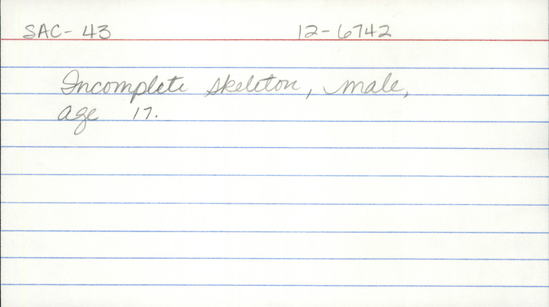 SAC-43 12-6742
Incomplete skeleton, male,
age 17.